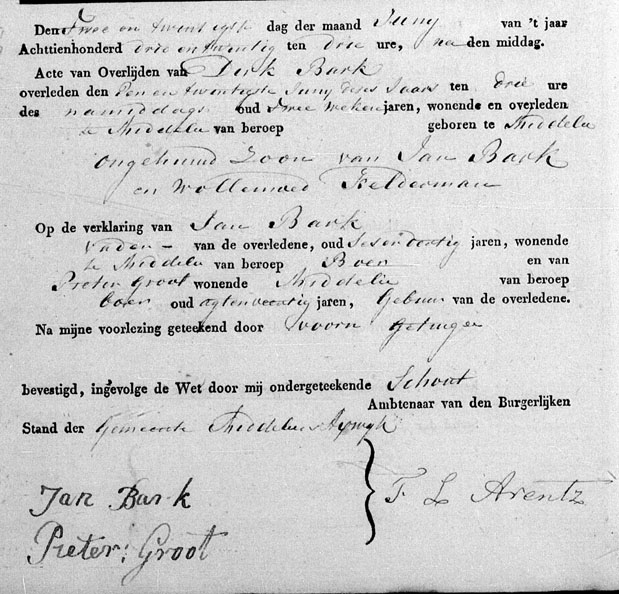 Den Twee en twintigste dag der maand Juny van 't jaar
Achttienhonderd drie en twintig ten drie ure, na den middag.
Acte van Overlijden van Dirk Bark
overleden den Een en twintigste Juny deses Jaars ten drie ure
des namiddags oud twee weken jaren, wonende en overleden
te Middelie van beroep geboren te Middelie
ongehuwd Zoon van Jan Bark
en Wollemoed Felderman
Op de verklaring van Jan Bark
Vader - van de overledene, oud Sesendertig jaren, wonende
te Middelie van beroep Boer en van
Pieter Groot wonende Middelie van beroep
boer oud agtenveertig jaren, Gebuur van de overledene.
Na mijne voorlezing geteekend door voorn Getuigen
bevestigd, ingevolge de Wet door mij ondergeteekende Schout
Ambtenaar van den Burgerlijken
Stand der Gemeente Middelie
Jan Bark
F L Arentz
Pieter Groot